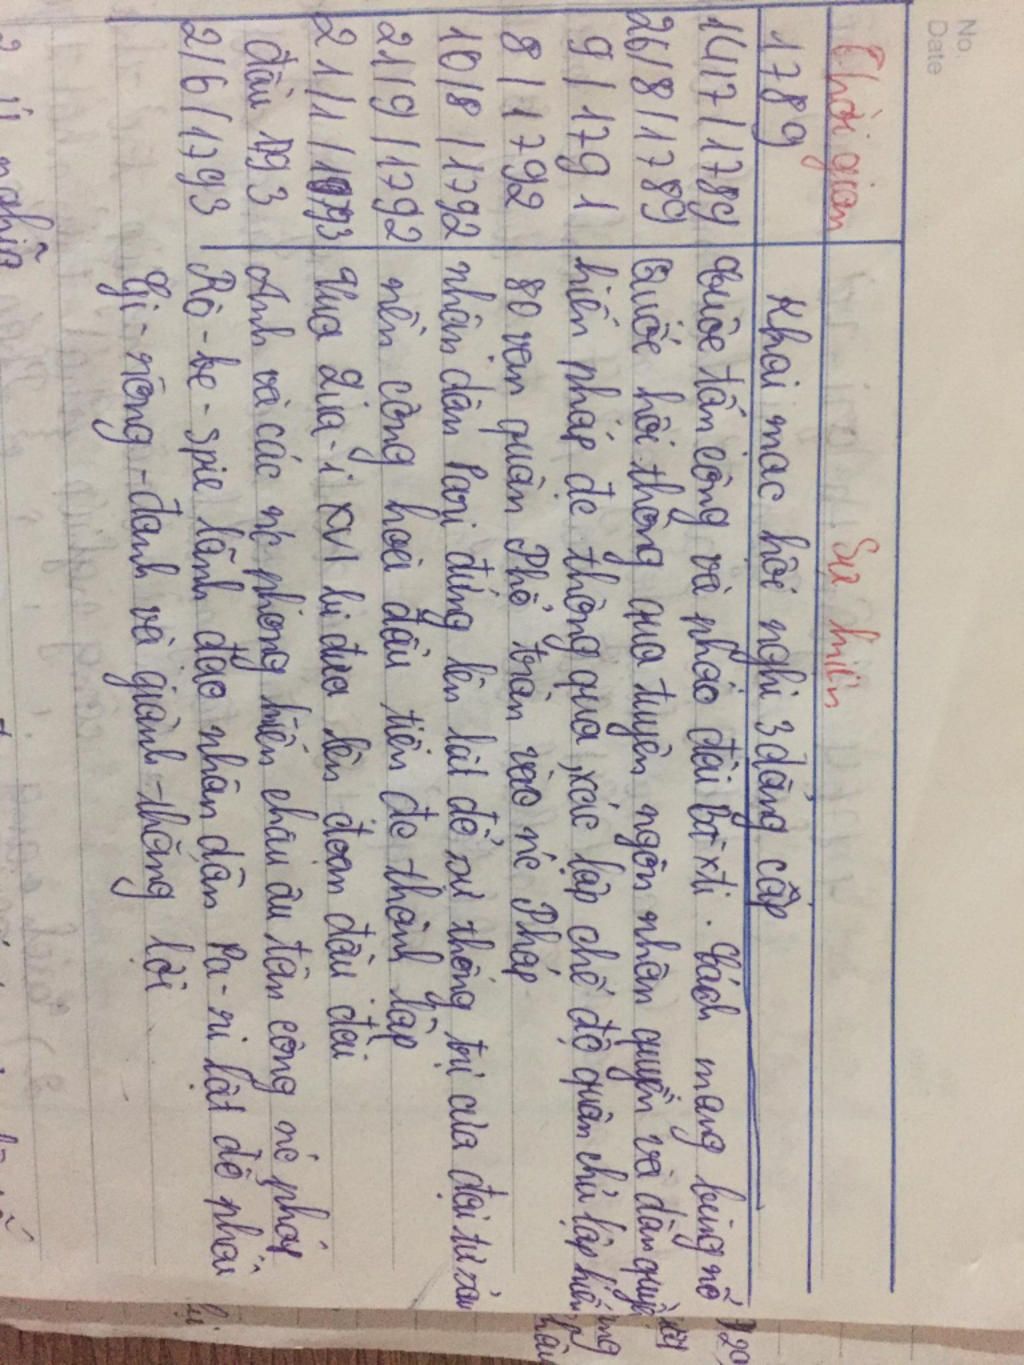 No.
Date
Thời gian Sự kiện
1789 Khai mạc hội nghị 3 đẳng cấp
14/7/1789 tấn công và pháo đài Ba-xti. Cách mạng bùng nổ
26/8/1789 Quốc hội thông qua tuyên ngôn nhân quyền và dân quyền
9/1791 hiến pháp đc thông qua, xác lập chế độ quân chủ lập hiến
8/1792 80 vạn quân Phổ tràn vào nc Pháp
10/8/1792 nhân dân Pari đứng lên lật đổ sự thống trị của đại tư sản
21/9/1792 nền cộng hoà đầu tiên đc thành lập
21/1/1793 vua Lu-i XVI bị đưa lên đoạn đầu đài
đầu 1793 Anh và các nc phong kiến châu âu tấn công nc pháp
2/6/1793 Rô-be-spie lãnh đạo nhân dân Pa-ri lật đổ phái
Gi-rông-đanh và giành thắng lợi
nghĩa